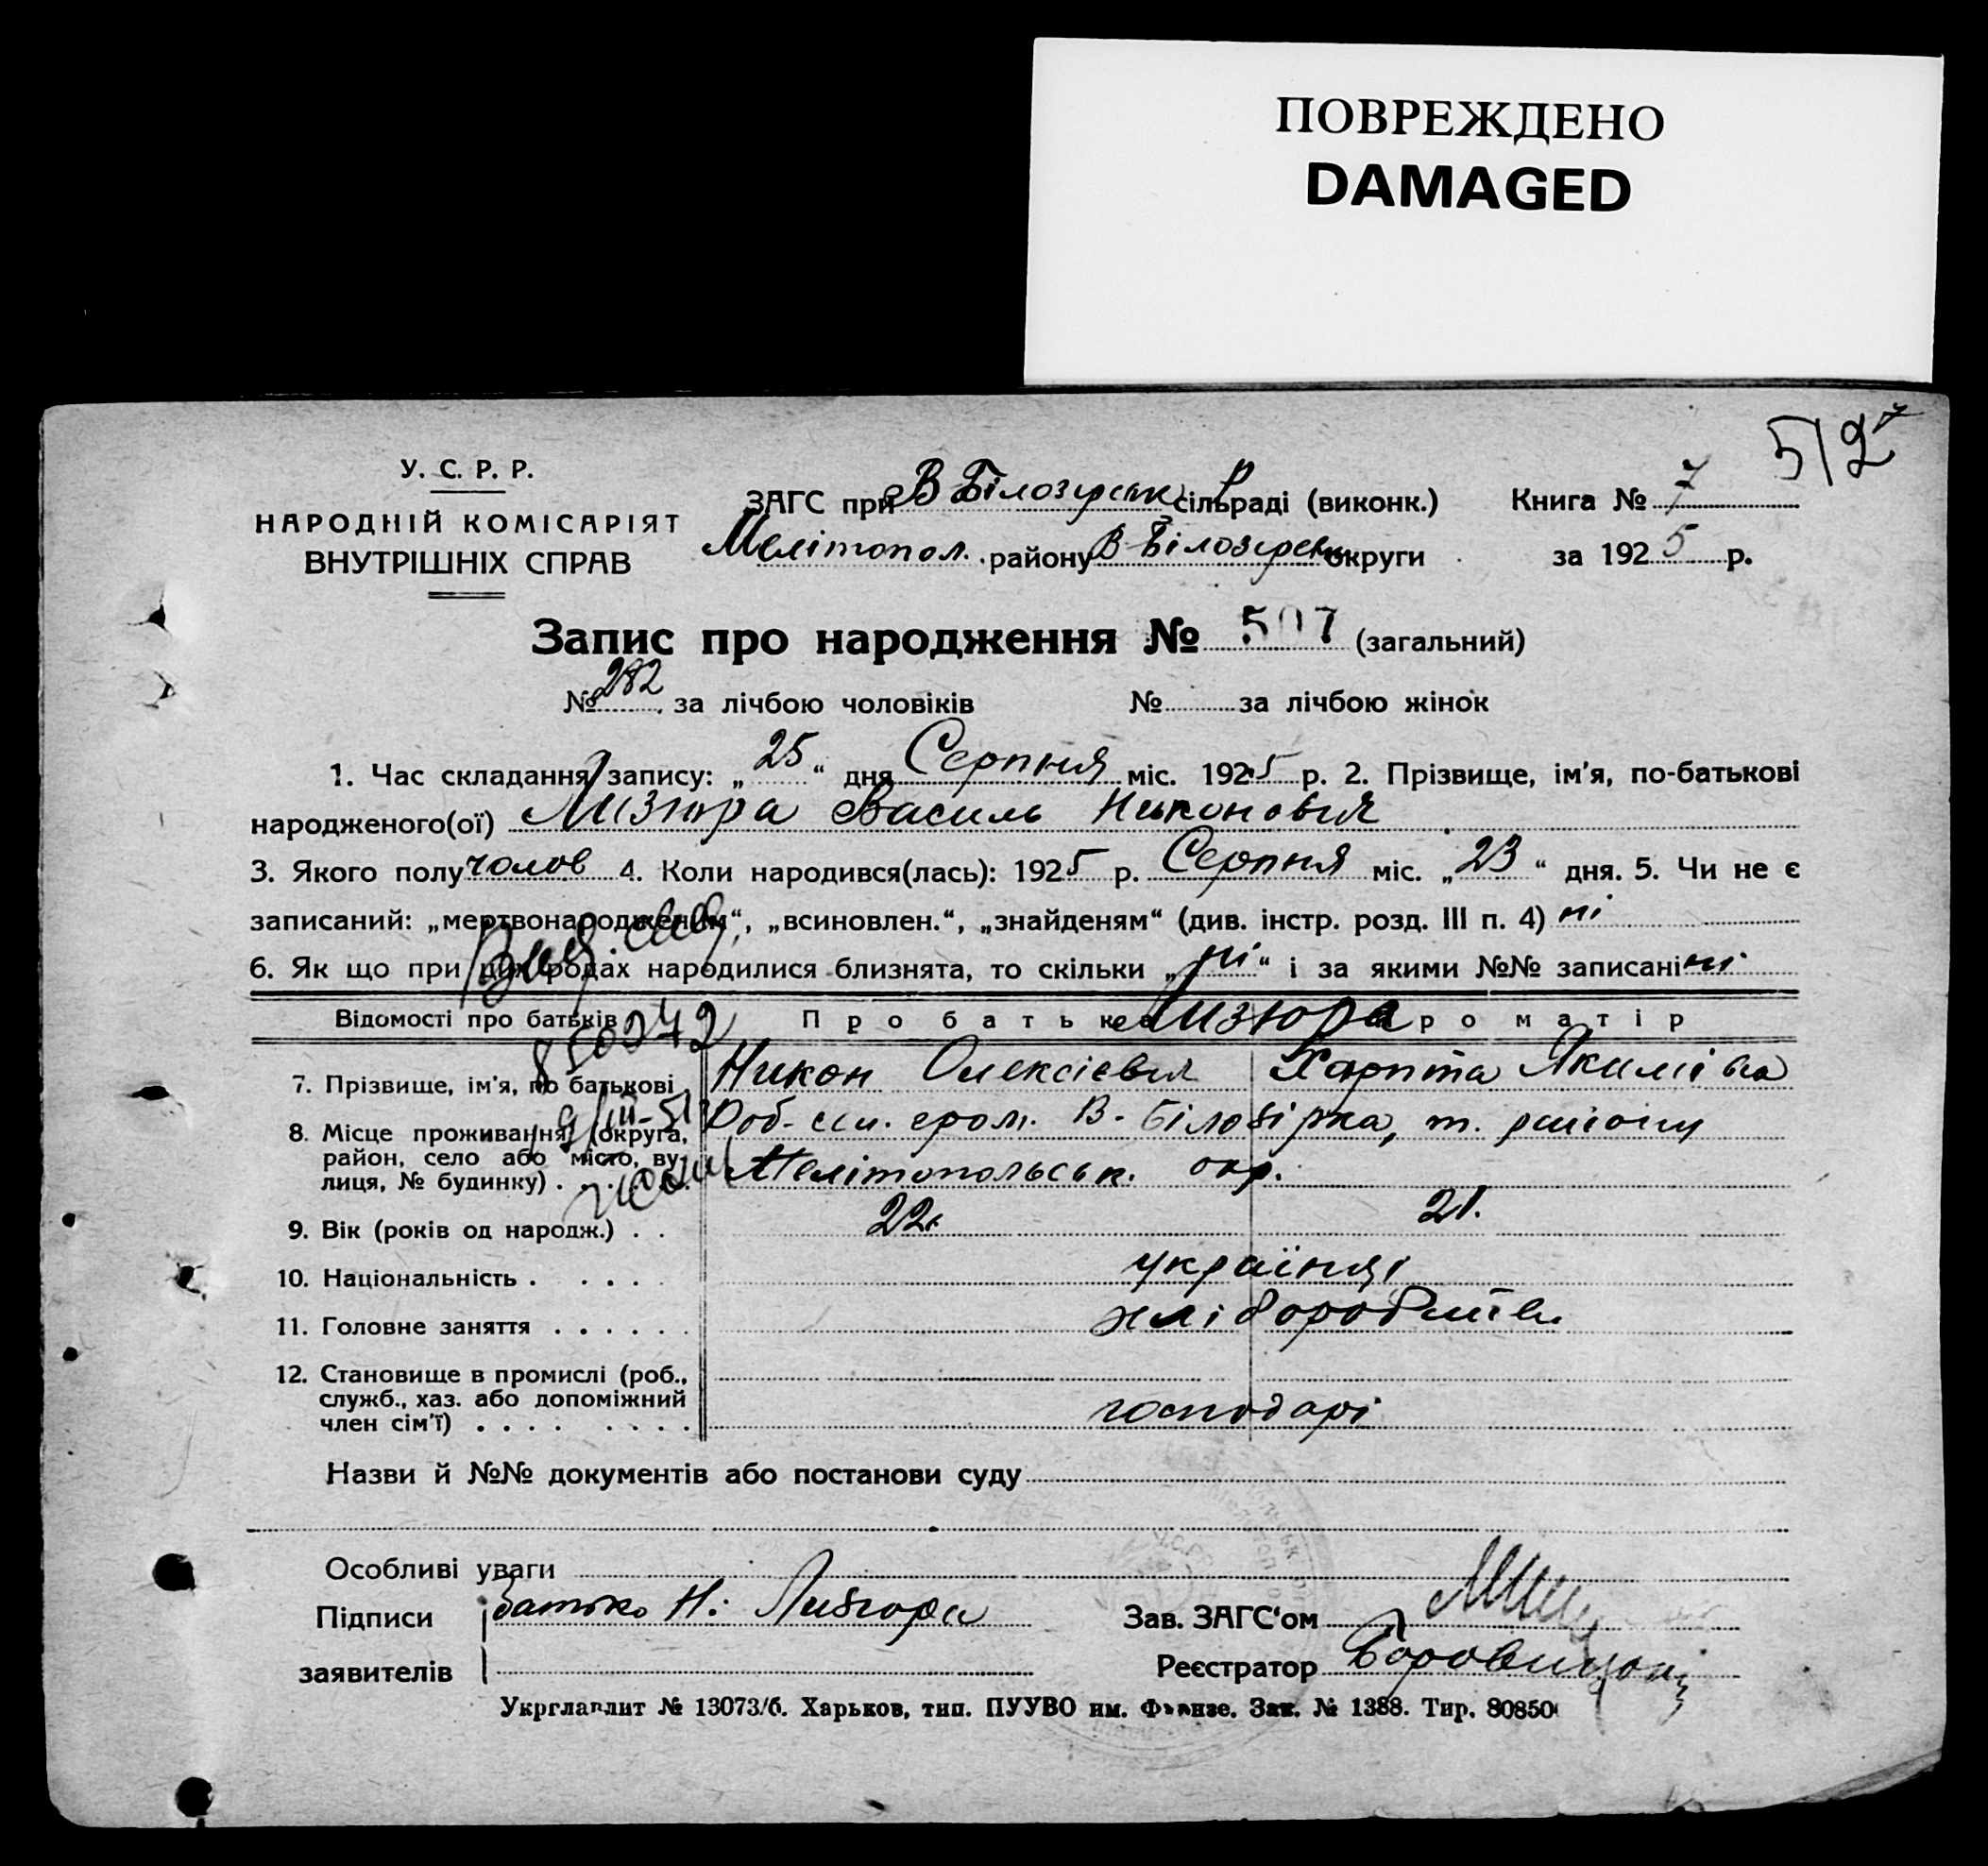 ПОВРЕЖДЕНО
DAMAGED
512
У. С. Р. Р.
НАРОДНІЙ КОМІСАРІЯТ
ВНУТРІШНІХ СПРАВ
ЗАГС при В Білозерськ. сільраді (виконк.) Книга № 7
Мелітопол. району В-Білозерськ округи за 1925 р.
Запис про народження № 507 (загальний)
№ 282 за лічбою чоловіків № за лічбою жінок
1. Час складання запису: „25“ дня Серпня міс. 1925 р. 2. Прізвище, ім'я, по-батькові
народженого(ої) Лизюра Василь Никонович
3. Якого полу чолов 4. Коли народився(лась): 1925 р. Серпня міс. „23“ дня. 5. Чи не є
записаний: „мертвонародженим“, „всиновлен.“, „знайденям“ (див. інстр. розд. III п. 4) ні
6. Як що при цих родах народилися близнята, то скільки „ні“ і за якими №№ записані ні
Відомості про батьків Про батька Лизюра Про матір
7. Прізвище, ім'я, по батькові Никон Олексієвич Харита Якимівна
8. Місце проживання (округа,
район, село або місто, ву-
лиця, № будинку) В-Білозірка, т. району
Мелітопольськ. окр.
9. Вік (років од народж.) 22. 21.
10. Національність українці
11. Головне заняття хліборобств.
12. Становище в промислі (роб.,
служб., хаз. або допоміжний
член сім'ї) господарі
Назви й №№ документів або постанови суду
Особливі уваги
Підписи заявителів батько Н. Лизюра
Зав. ЗАГС'ом
Реєстратор
Укрглавлит № 13073/б. Харьков, тип. ПУУВО им. Фрунзе. Зак. № 1388. Тир. 80850